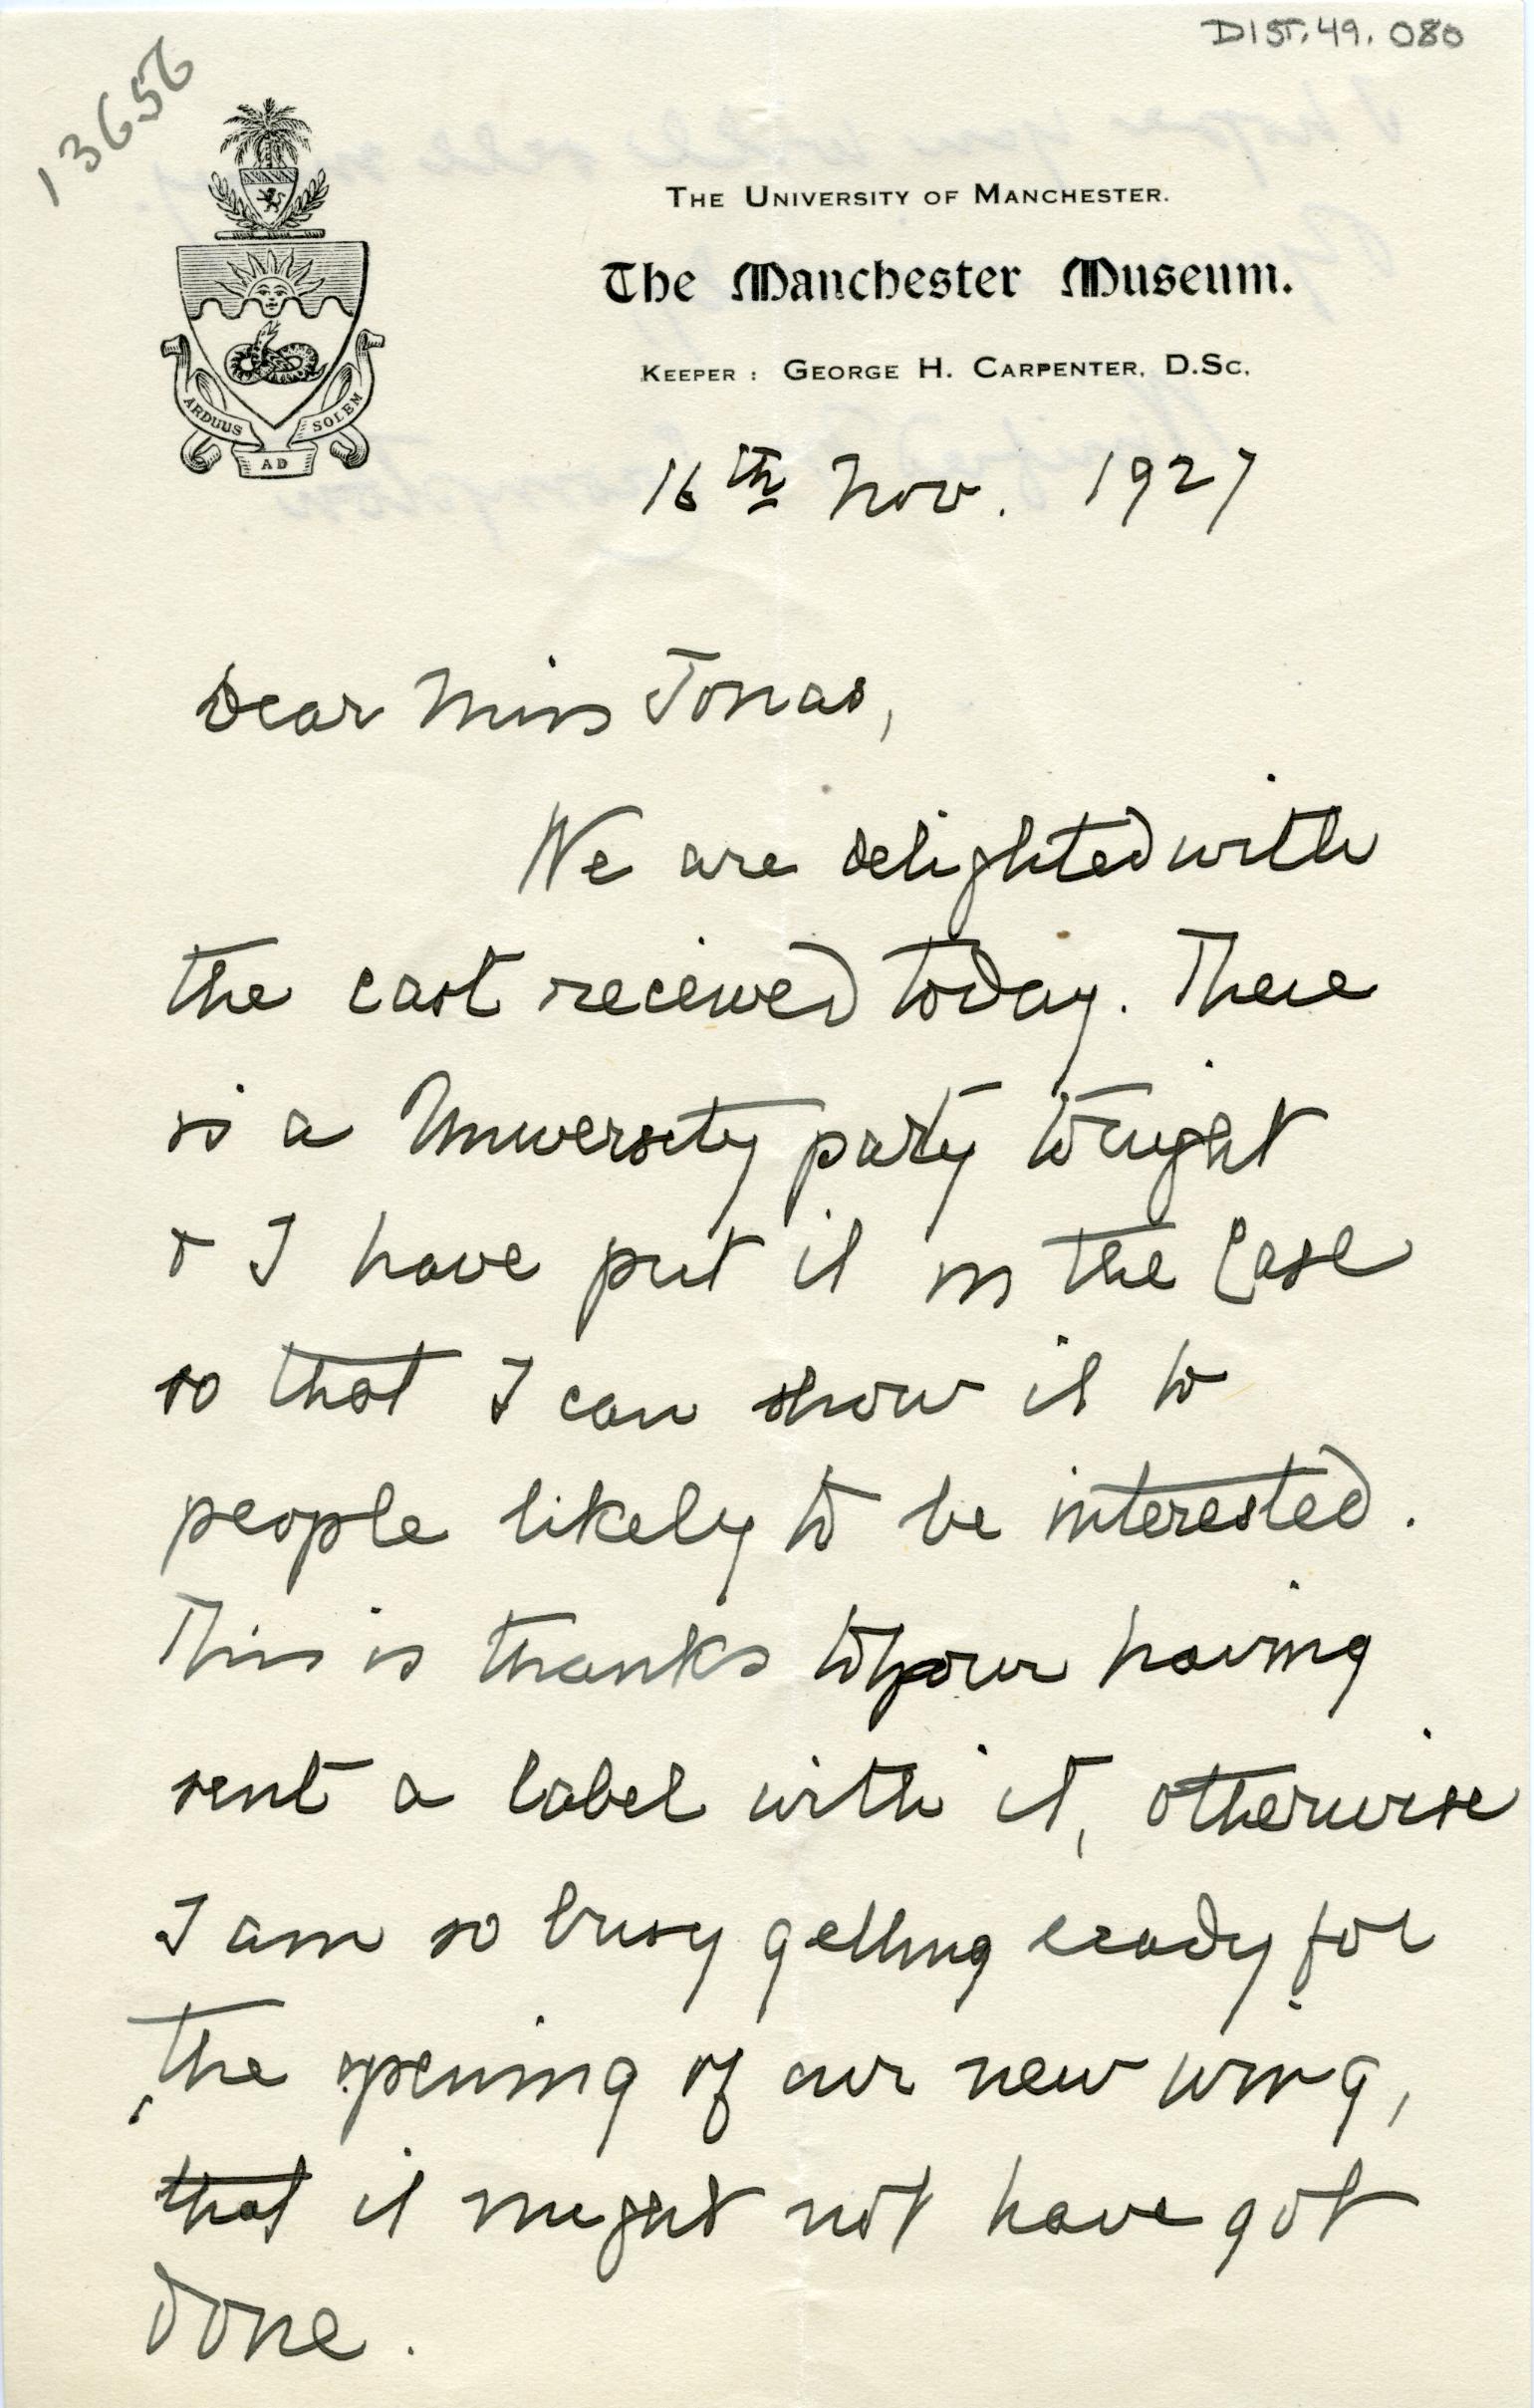 DIST.49.080
13656
THE UNIVERSITY OF MANCHESTER.
The Manchester Museum.
KEEPER : GEORGE H. CARPENTER, D.Sc.
ARDUUS AD SOLEM
16th Nov. 1927
Dear Miss Jonas,
We are delighted with
the cast received today. There
is a University party tonight
& I have put it in the case
so that I can show it to
people likely to be interested.
This is thanks to your having
sent a label with it, otherwise
I am so busy getting ready for
the opening of our new wing,
that it might not have got
done.